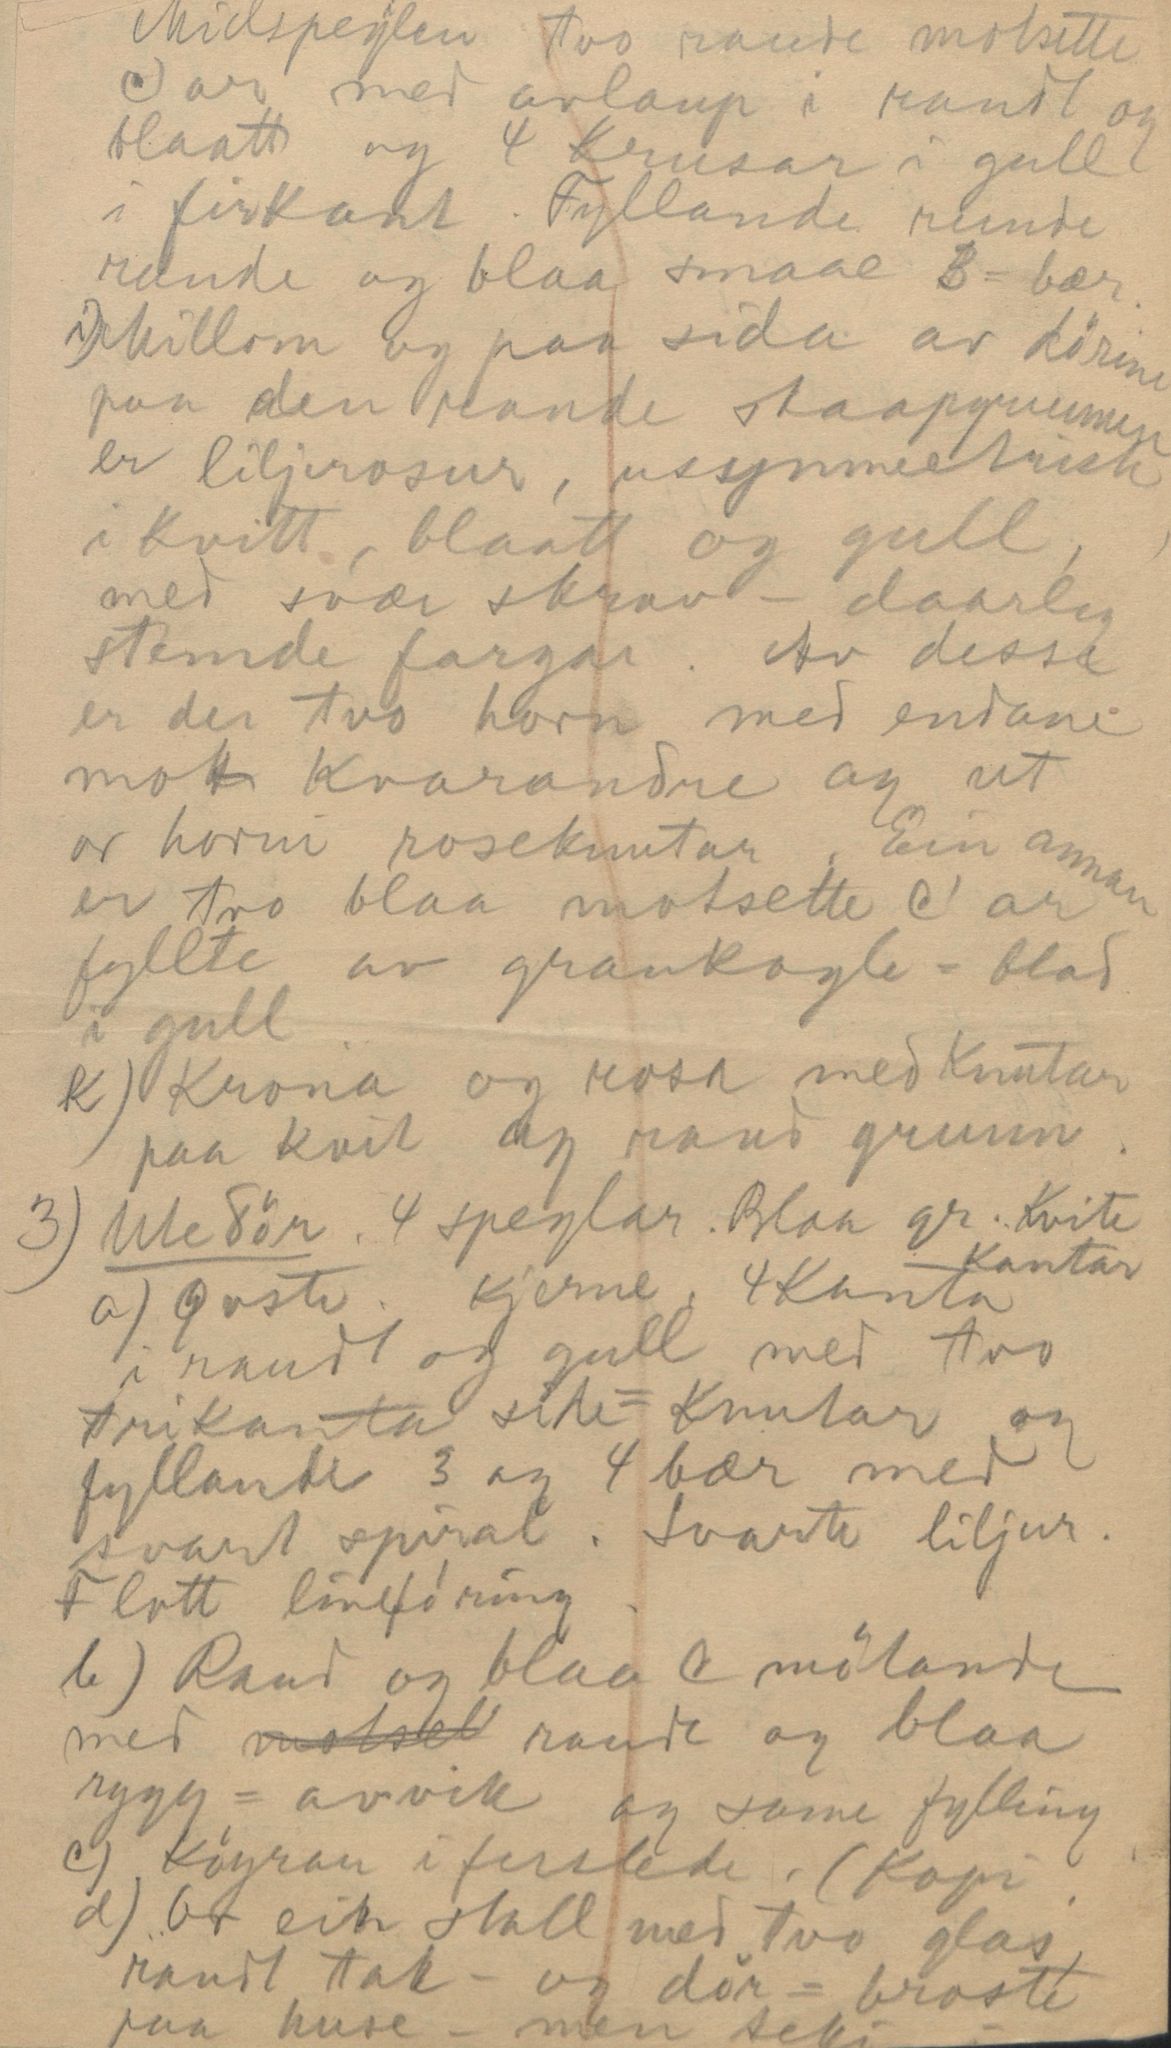 Midspeglen two raude motsette
C ar med avlaup i raudt og
blaatt og 4 Krusar i gull
i firkant. Fyllande runde
raude og blaa smaae 3-bær.
i) Millom og paa sida av dörine
paa den raude skaapgrunnen
er liljerosur, ussymmetrisk
i kvitt, blaatt og gull,
med svær skrav - daarleg
stemde fargar. Av desse
er der tvo horn med endane
mot kvarandre og ut
or horni roseknutar. Ein annan
er tvo blaa motsette C ar
fyllte av grankogle-blad
i gull
k) Krona og rosa med Knutar
paa kvit og raud grunn.
3) Ute dör. 4 speglar. Blaa gr. Kvite
kantar
a) Övste. Kjerne, 4 Kanta
i raudt og gull med tvo
trikanta side=Knutar og
fyllande 3 og 4 bær med
svart spiral. Svarte liljur.
Flott lineföring.
b) Raud og blaa C mötande
med motset raude og blaa
rygg=avvik og same fylling
c) Köyran i ferslede. (Kopi.
d) Or ein stall med tvo glas,
raudt tak - og dör=broste
paa huse - men